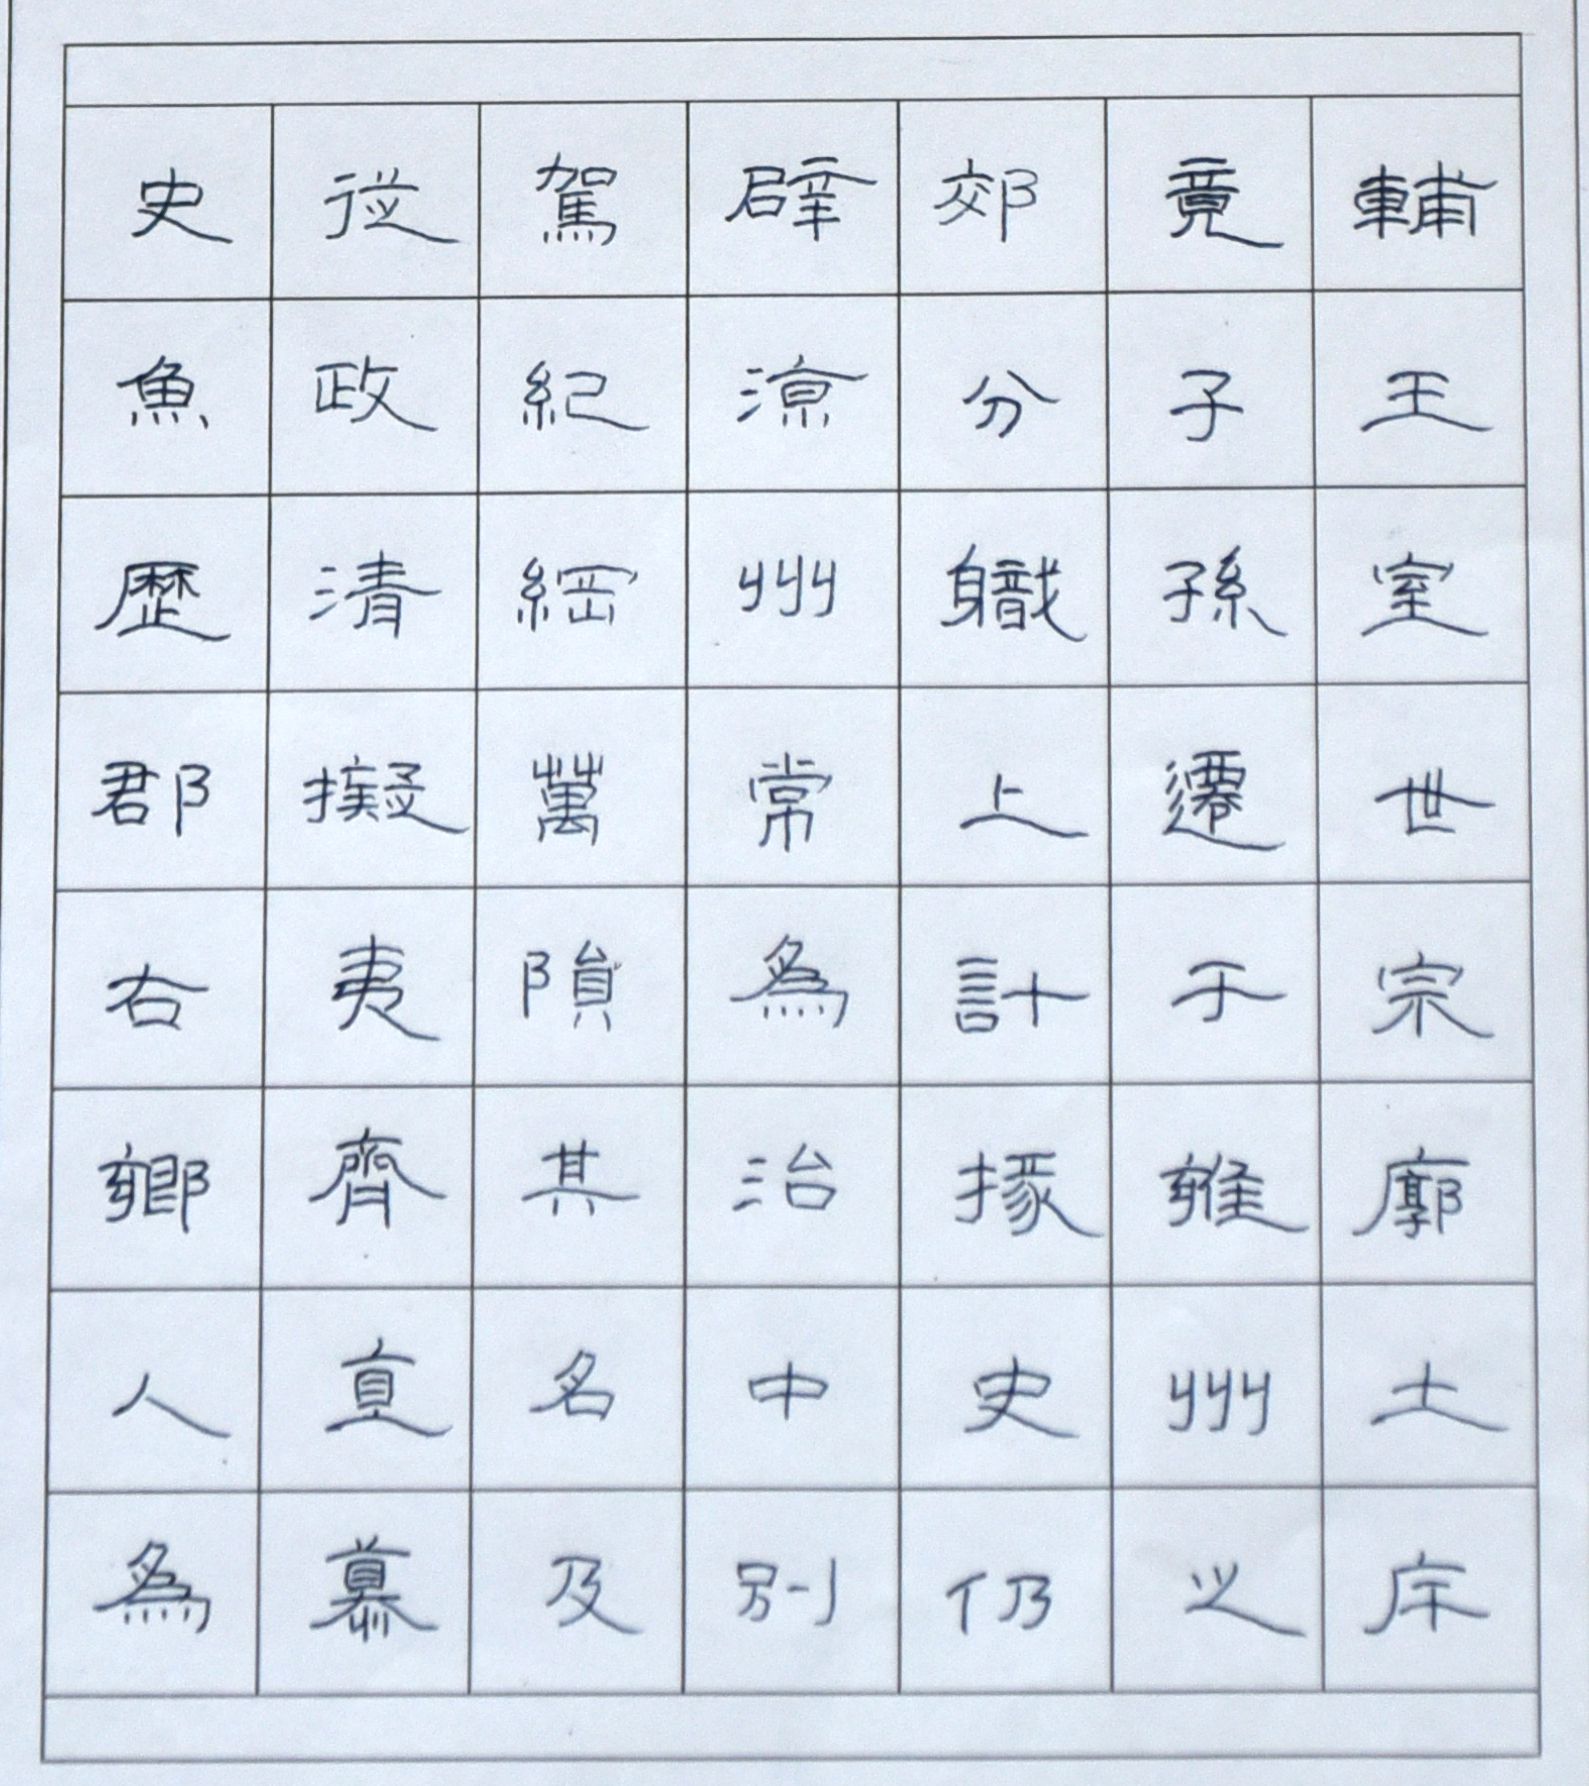 輔王室世宗廓土斥
竟子孫遷于雍州之
郊分軄上計掾史仍
辟涼州常為治中別
駕紀綱萬隕其名及
從政清擬夷齊直慕
史魚歷郡右鄉人為